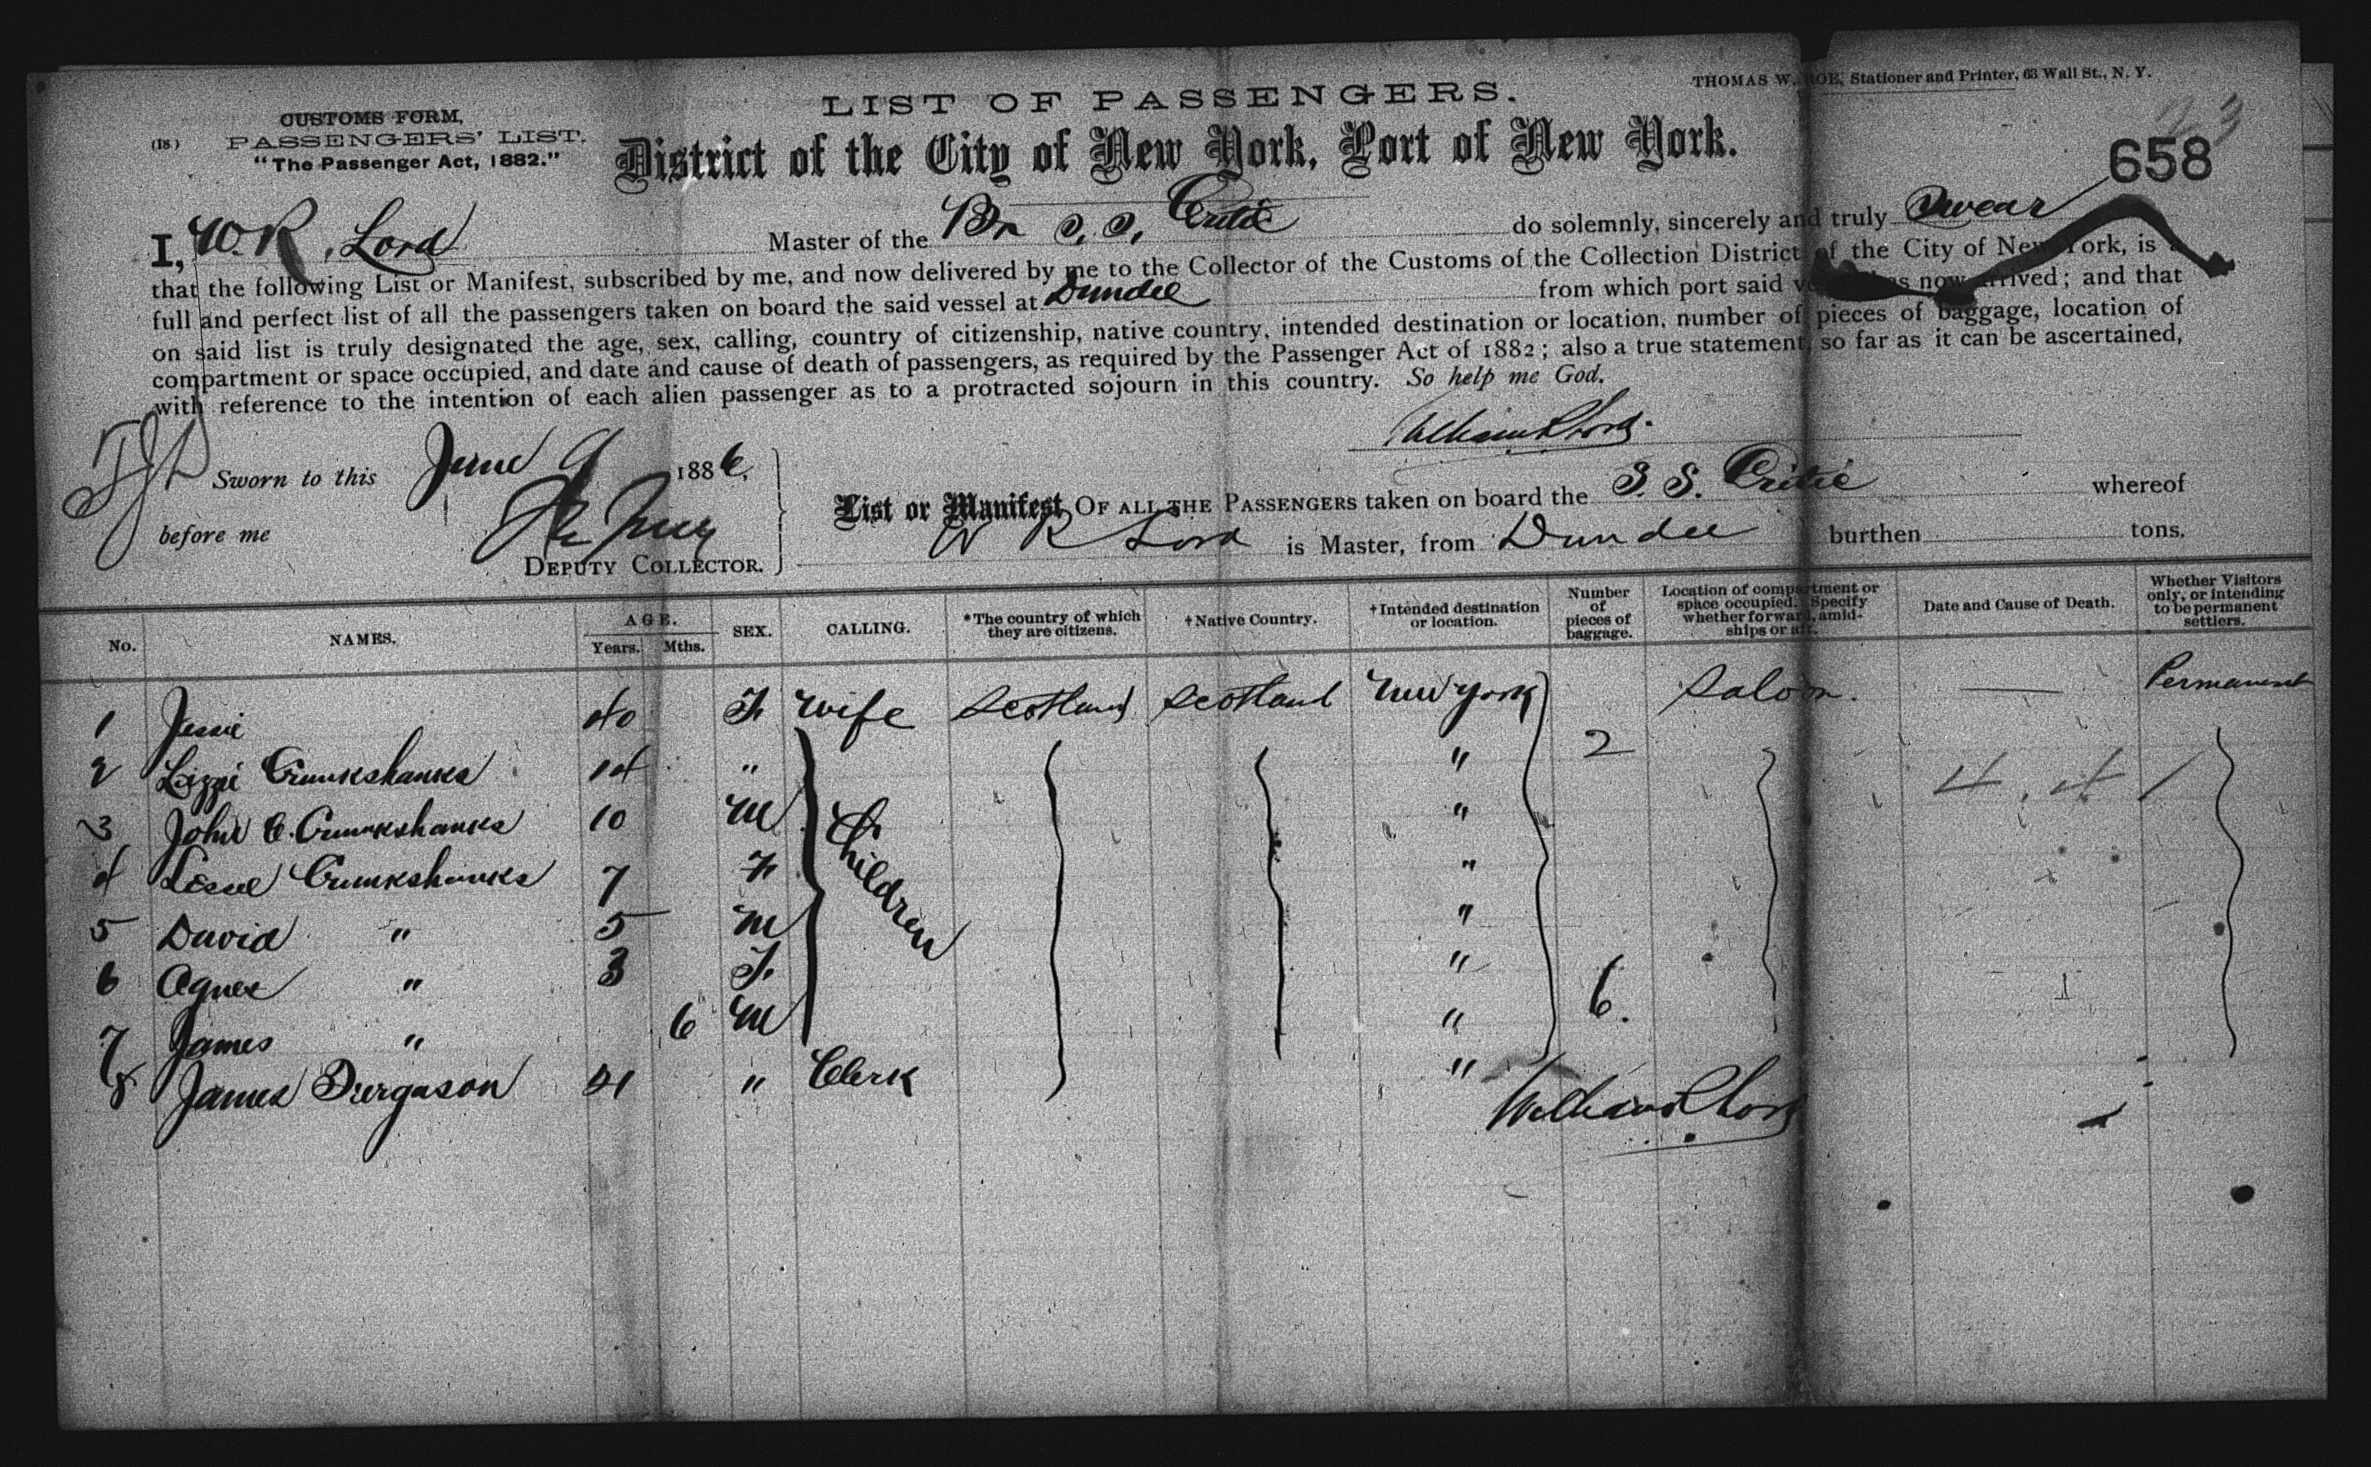 THOMAS W. ROE, Stationer and Printer, 63 Wall St., N. Y.
LIST OF PASSENGERS.
CUSTOMS FORM,
(18) PASSENGERS' LIST.
"The Passenger Act, 1882."
District of the City of New York, Port of New York.
658
I, W. R. Lord Master of the Br S.S. Critic do solemnly, sincerely and truly Swear
that the following List or Manifest, subscribed by me, and now delivered by me to the Collector of the Customs of the Collection District of the City of New York, is a
full and perfect list of all the passengers taken on board the said vessel at Dundee from which port said vessel has now arrived; and that
on said list is truly designated the age, sex, calling, country of citizenship, native country, intended destination or location, number of pieces of baggage, location of
compartment or space occupied, and date and cause of death of passengers, as required by the Passenger Act of 1882; also a true statement, so far as it can be ascertained,
with reference to the intention of each alien passenger as to a protracted sojourn in this country. So help me God.
William R Lord.
Sworn to this June 9 1886,
before me
DEPUTY COLLECTOR.
List or Manifest OF ALL THE PASSENGERS taken on board the S. S. Critic whereof
W R Lord is Master, from Dundee burthen tons.
No. NAMES. AGE. Years. Mths. SEX. CALLING. *The country of which they are citizens. †Native Country. †Intended destination or location. Number of pieces of baggage. Location of compartment or space occupied. Specify whether forward, amidships or aft. Date and Cause of Death. Whether Visitors only, or intending to be permanent settlers.
1 Jessie 40 F. Wife Scotland Scotland New York Saloon. — Permanent
2 Lizzie Cruikshanks 14 " " 2
3 John C. Cruikshanks 10 M "
4 Cruikshanks 7 F "
Children
5 David " 5 M "
6 Agnes " 3 F. "
7 James " 6 M " 6.
8 James Furgason 21 " Clerk "
William R Lord